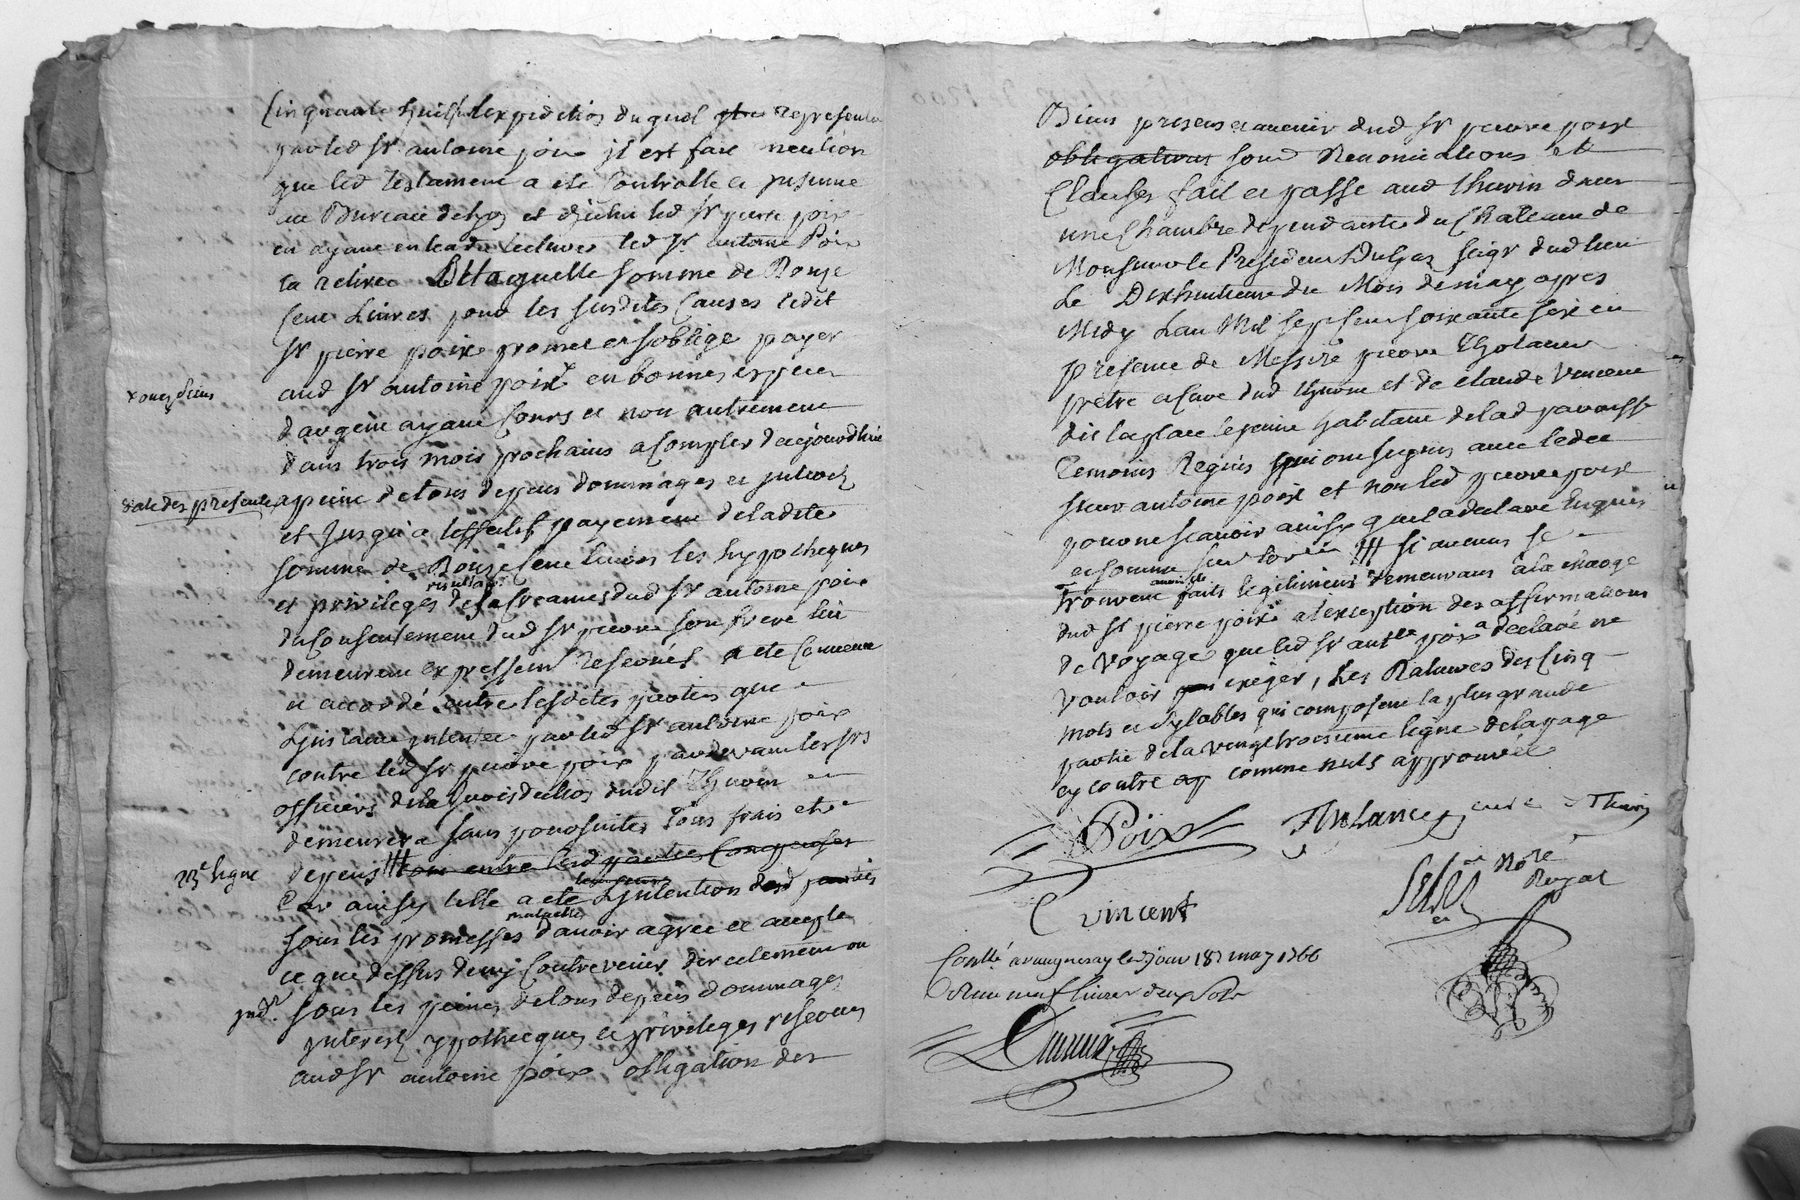 Cinquante huit l'expedition duquel representé
par led sr antoine poix il est fait mention
que led testament a eté Controllé et insinué
au Bureau de lyon et dicelui led sr pierre poix
en ayant entendu lecture led sr antoine Poix
la retiré Dé Laquelle somme de Donze
Cent Livres pour les susdites Causes ledit
sr pierre poix promet et soblige payer
aud sr antoine poix en bonnes especes
x onze Cens
dargent ayant Cours et non autrement
dans trois mois prochains a Compter daujourdhui
date des presentes apeine de tous depens dommages et interets
et Jusqu'a leffectif payement de ladite
somme de Donze Cent livres les hypotheques
et privileges de la Creance dud sr antoine poix
du Consentement dud sr pierre son frere lui
demeurent expressement reservés a eté Convenu
et accordé entre lesdites parties que
linstance intentée par led sr antoine poix
contre led sr pierre poix pardevant les srs
officiers de la Jurisdiction dudit Thurin
demeurera sans poursuites tous frais et
23e ligne depens entre lesd parties Compensés
Car ainsy telle a eté Lintention desd parties
sous les promesses mutuelles d'avoir agreé et accepté
ce que dessus de ny Contrevenir directement ou
indt. sous les peines de tous depens dommages
interets ypotheques et privileges reservés
aud sr antoine poix obligation des
Biens presens et avenir dud sr pierre poix
obligations soumd Renonciations et
Clauses fait et passé aud thurin dans
une Chambre dependante du Chateau de
Monsieur le President Dugas seigr dud lieu
Le Dixhuitieme du Mois de may apres
Midy Lan Mil Sept Cent soixante six en
presence de Messire pierre
prêtre et Curé dud thurin et de claude vincent
dit laplace le jeune habitant de lad paroisse
temoins Requis qui ont signés avec ledit
sieur antoine poix et non led pierre poix
pour ne scavoir ainsy quil a declaré Enquis
et sommé si aucuns se
trouvent avoir eté faits legitimement demeurans a la charge
dud sr pierre poix a l'exception des affirmations
de Voyage que led sr antne poix a declaré ne
Vouloir exiger, Les Ratures des Cinq
mots et sylabes qui composent la plus grande
partie de la vingt troisieme ligne de la page
cy contre comme nuls approuvée
Poix
curé Thurin
C vincent
Nore
Royal
Contlé a vaugneray led jour 18 may 1766
Reçu neuf livres deux sols